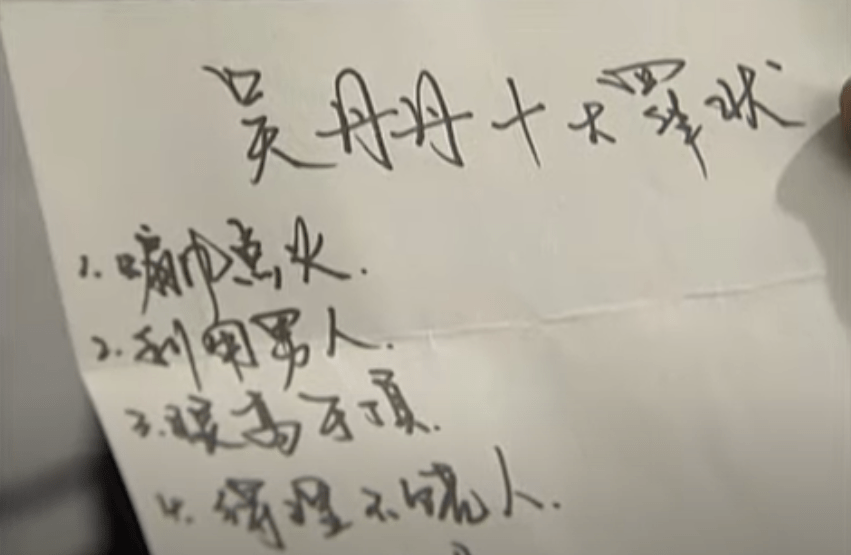 吴丹丹十大罪状
1. 煽风点火.
2. 利用男人.
3. 眼高于顶.
4. 得理不饶人.